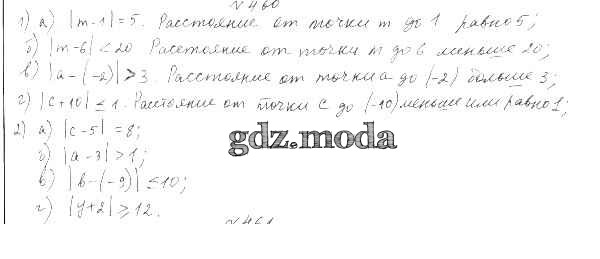 №460
1) а) |m-1|=5. Расстояние от точки m до 1 равно 5;
б) |m-6|<20 Расстояние от точки m до 6 меньше 20;
в) |a-(-2)|>3. Расстояние от точки a до (-2) больше 3;
г) |c+10|≤1. Расстояние от точки c до (-10) меньше или равно 1;
2) а) |c-5|=8;
gdz.moda
б) |a-3|>1;
в) |b-(-9)|≤10;
г) |y+2|≥12.
№461